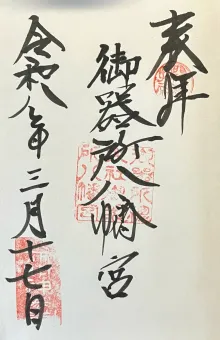 奉拝
御器所八幡宮
令和八年三月十七日